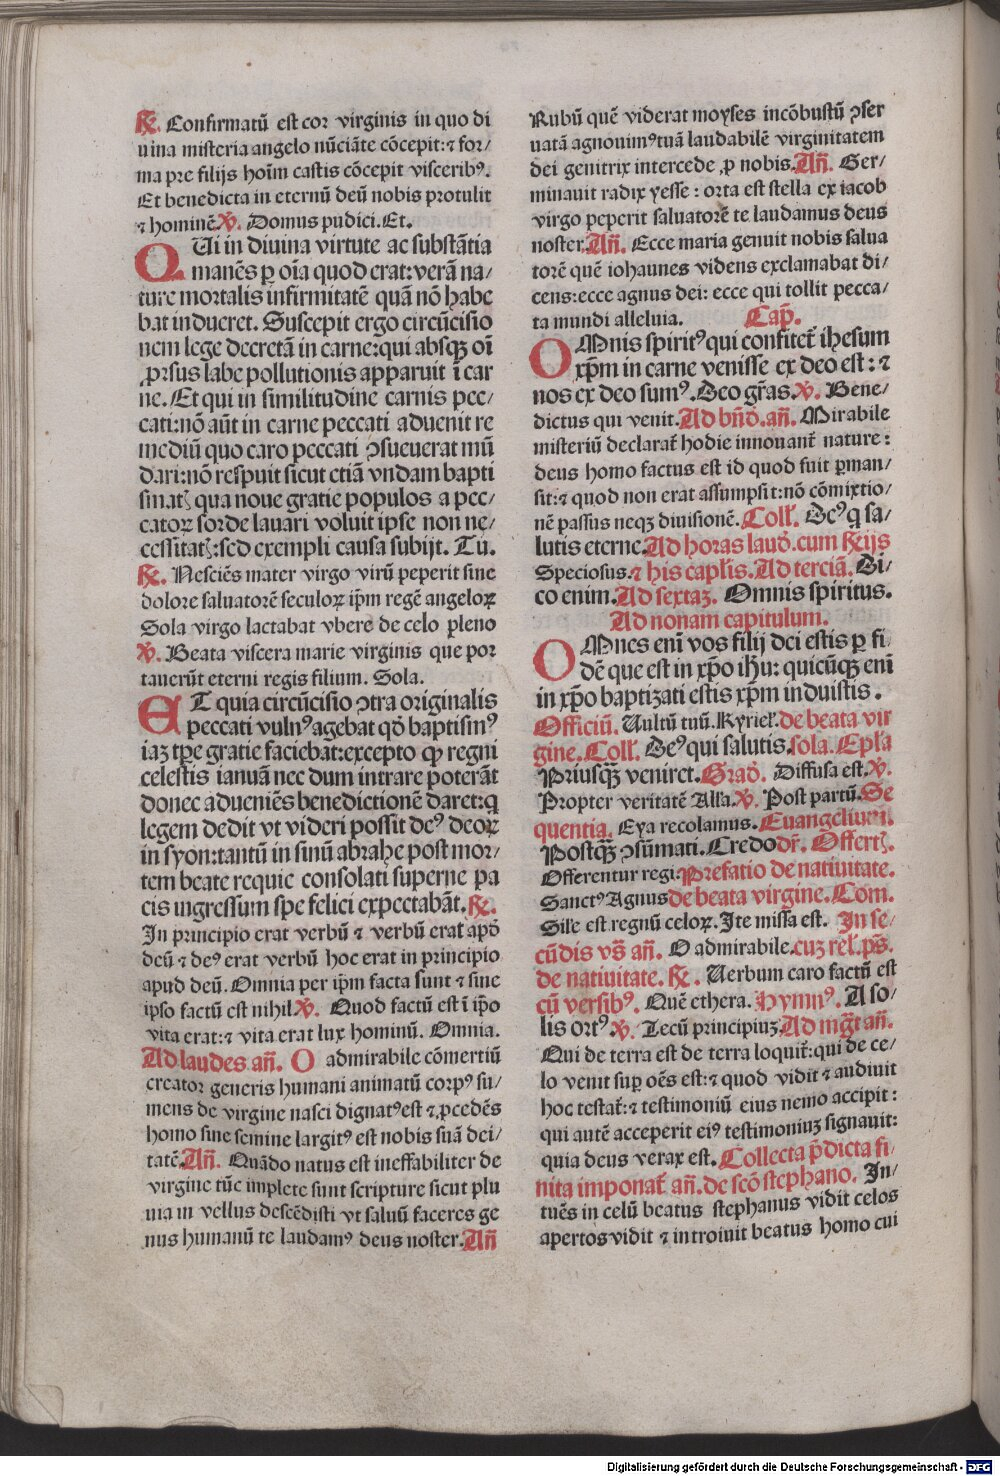 ℟. Confirmatū est cor virginis in quo di
uina misteria angelo nūciāte cōcepit: ⁊ for/
ma pre filijs hoīm castis cōcepit visceribꝰ.
Et benedicta in eternū deū nobis protulit
⁊ hominē ℣. Domus pudici. Et.
QUi in diuina virtute ac substātia
manēs ꝑ oīa quod erat: verā na/
ture mortalis infirmitatē quā nō habe
bat indueret. Suscepit ergo circūcisio
nem lege decretā in carne: qui absqꝫ oī
ꝓrsus labe pollutionis apparuit ī car
ne. Et qui in similitudine carnis pec/
cati: nō aūt in carne peccati aduenit re
mediū quo caro peccati ꝯsueuerat mū
dari: nō respuit sicut etiā vndam bapti
smatꝭ qua noue gratie populos a pec/
catoꝝ sorde lauari voluit ipse non ne/
cessitatꝭ: sed exempli causa subijt. Tu.
℟. Nesciēs mater virgo virū peperit sine
dolore saluatorē seculoꝝ ip̄m regē angeloꝝ
Sola virgo lactabat vbere de celo pleno
℣. Beata viscera marie virginis que por
tauerūt eterni regis filium. Sola.
ET quia circūcisio ꝯtra originalis
peccati vulnꝰ agebat qd̄ baptismꝰ
iaꝫ tp̄e gratie faciebat: excepto ꝙ regni
celestis ianuā nec dum intrare poterāt
donec adueniēs benedictionē daret: q
legem dedit vt videri possit deꝰ deoꝝ
in syon: tantū in sinū abrahe post mor/
tem beate requie consolati superne pa
cis ingressum spe felici expectabāt. ℟.
In principio erat verbū ⁊ verbū erat apd̄
deū ⁊ deꝰ erat verbū hoc erat in principio
apud deū. Omnia per ip̄m facta sunt ⁊ sine
ipso factū est nihil ℣. Quod factū est ī ip̄o
vita erat: ⁊ vita erat lux hominū. Omnia.
Ad laudes an̄. O admirabile cōmertiū
creator generis humani animatū corpꝰ su/
mens de virgine nasci dignatꝰ est ⁊ ꝓcedēs
homo sine semine largitꝰ est nobis suā dei/
tatē. An̄. Quādo natus est ineffabiliter de
virgine tūc implete sunt scripture sicut plu
uia in vellus descēdisti vt saluū faceres ge
nus humanū te laudamꝰ deus noster. An̄
Rubū quē viderat moyses incōbustū ꝯser
uatā agnouimꝰ tuā laudabilē virginitatem
dei genitrix intercede ꝓ nobis. An̄. Ger/
minauit radix yesse: orta est stella ex iacob
virgo peperit saluatorē te laudamus deus
noster. An̄. Ecce maria genuit nobis salua
torē quē iohannes videns exclamabat di/
cens: ecce agnus dei: ecce qui tollit pecca/
ta mundi alleluia. Cap̄.
OMnis spiritꝰ qui confitet᷑ ihesum
xp̄m in carne venisse ex deo est: ⁊
nos ex deo sumꝰ. Deo gr̄as. ℣. Bene/
dictus qui venit. Ad bn̄d. an̄. Mirabile
misteriū declarat᷑ hodie innouant᷑ nature:
deus homo factus est id quod fuit ꝑman/
sit: ⁊ quod non erat assumpsit: nō cōmixtio/
nē passus neqꝫ diuisionē. Coll᷑. Deꝰ q sa/
lutis eterne. Ad horas laud. cum ℟ijs
Speciosus. ⁊ his capl̄is. Ad terciā. Di/
co enim. Ad sextaꝫ. Omnis spiritus.
Ad nonam capitulum.
OMnes eni vos filij dei estis ꝑ fi/
dē que est in xp̄o ihu: quicūqꝫ eni
in xp̄o baptizati estis xp̄m induistis.
Officiū. Uultū tuū. Kyriel᷑. de beata vir
gine. Coll᷑. Deꝰ qui salutis. sola. Ep̄la
Priusqꝫ veniret. Grad̄. Diffusa est. ℣.
Propter veritatē All'a. ℣. Post partū. Se
quentia. Eya recolamus. Euangelium.
Postqꝫ ꝯsūmati. Credo dr̄. Offertꝭ.
Offerentur regi. Prefatio de natiuitate.
Sanctꝰ Agnus de beata virgine. Com.
Sil'e est regnū celoꝝ. Ite missa est. In se/
cūdis vs̄ an̄. O admirabile. cuꝫ rel᷑. ps̄.
de natiuitate. ℟. Uerbum caro factū est
cū versibꝰ. Quē ethera. Hymnꝰ. A so/
lis ortꝰ ℣. Tecū principiuꝫ. Ad mḡt an̄.
Qui de terra est de terra loquit᷑: qui de ce/
lo venit suꝑ oēs est: ⁊ quod vidit ⁊ audiuit
hoc testat᷑: ⁊ testimoniū eius nemo accipit:
qui autē acceperit eiꝰ testimoniuꝫ signauit:
quia deus verax est. Collecta p̄dicta fi/
nita imponat᷑ an̄. de sco stephano. In/
tuēs in celū beatus stephanus vidit celos
apertos vidit ⁊ introiuit beatus homo cui
Digitalisierung gefördert durch die Deutsche Forschungsgemeinschaft - DFG